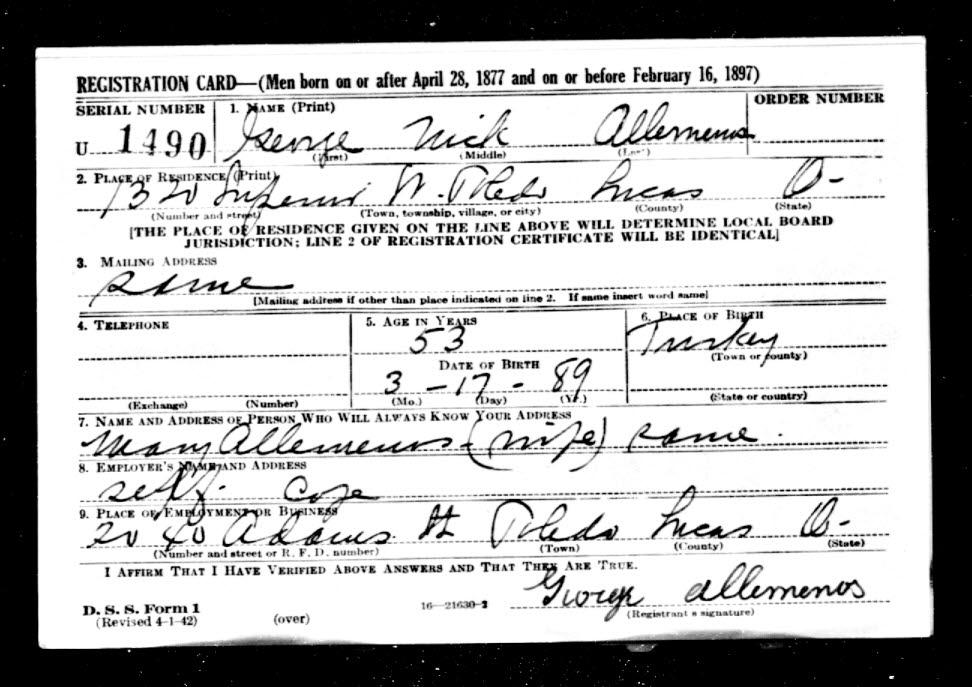 REGISTRATION CARD—(Men born on or after April 28, 1877 and on or before February 16, 1897)
SERIAL NUMBER
1. NAME (Print)
ORDER NUMBER
U 1490
George Nick Allemenos
(First) (Middle) (Last)
2. PLACE OF RESIDENCE (Print)
1320 Superior St. Toledo Lucas O-
(Number and street) (Town, township, village, or city) (County) (State)
[THE PLACE OF RESIDENCE GIVEN ON THE LINE ABOVE WILL DETERMINE LOCAL BOARD
JURISDICTION; LINE 2 OF REGISTRATION CERTIFICATE WILL BE IDENTICAL]
3. MAILING ADDRESS
same
[Mailing address if other than place indicated on line 2. If same insert word same]
4. TELEPHONE
(Exchange) (Number)
5. AGE IN YEARS
53
DATE OF BIRTH
3 - 17 - 89
(Mo.) (Day) (Yr.)
6. PLACE OF BIRTH
Turkey
(Town or county)
(State or country)
7. NAME AND ADDRESS OF PERSON WHO WILL ALWAYS KNOW YOUR ADDRESS
Mary Allemenos - (wife) same.
8. EMPLOYER'S NAME AND ADDRESS
self. Cafe
9. PLACE OF EMPLOYMENT OR BUSINESS
2040 Adams St Toledo Lucas O-
(Number and street or R. F. D. number) (Town) (County) (State)
I AFFIRM THAT I HAVE VERIFIED ABOVE ANSWERS AND THAT THEY ARE TRUE.
George Allemenos
D. S. S. Form 1
(Revised 4-1-42)
(over)
16—21630-2
(Registrant's signature)